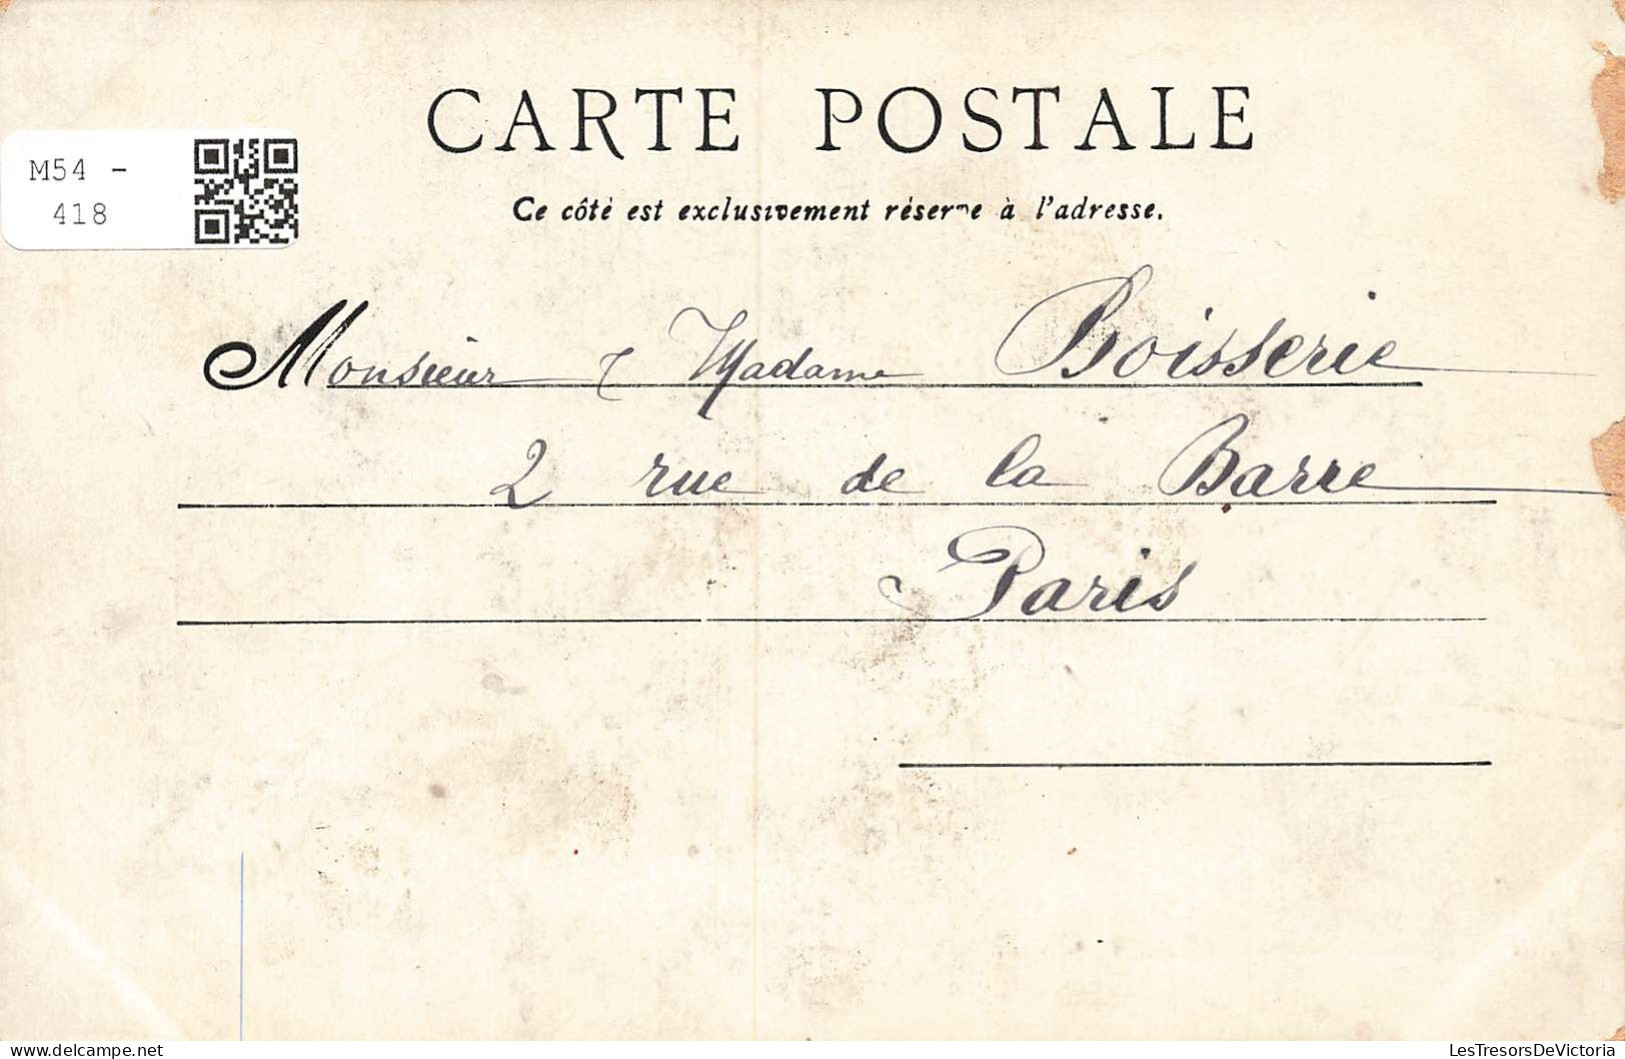 CARTE POSTALE
M54 -
418
Ce côté est exclusivement réservé à l'adresse.
Monsieur & Madame Boisserie
2 rue de la Barre
Paris
delcampe.net
LesTresorsDeVictoria